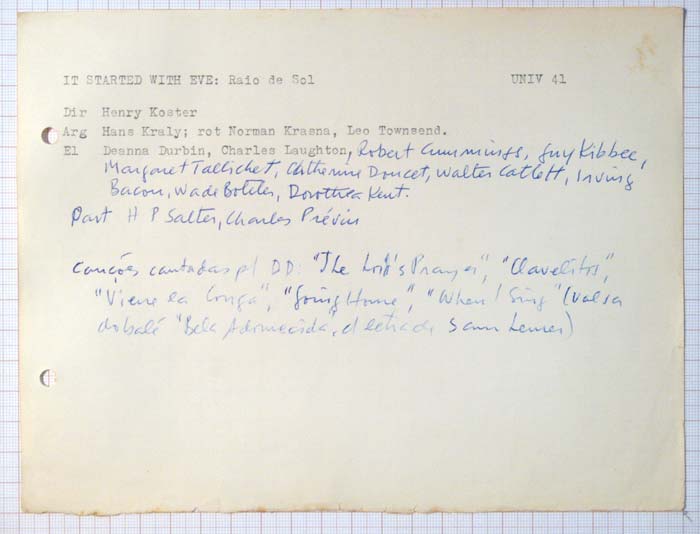 IT STARTED WITH EVE: Raio de Sol UNIV 41
Dir Henry Koster
Arg Hans Kraly; rot Norman Krasna, Leo Townsend.
El Deanna Durbin, Charles Laughton, Robert Cummings, Guy Kibbee,
Margaret Tallichet, Catherine Doucet, Walter Catlett, Irving
Bacon, Wade Boteler, Dorothea Kent.
Part H P Salter, Charles Prévin
canções cantadas p/ DD: "The Lord's Prayer", "Clavelitos",
"Viene la Conga", "Going Home", "When I Sing" (valsa
do balé "Bela Adormecida", d letra de Sam Lerner)